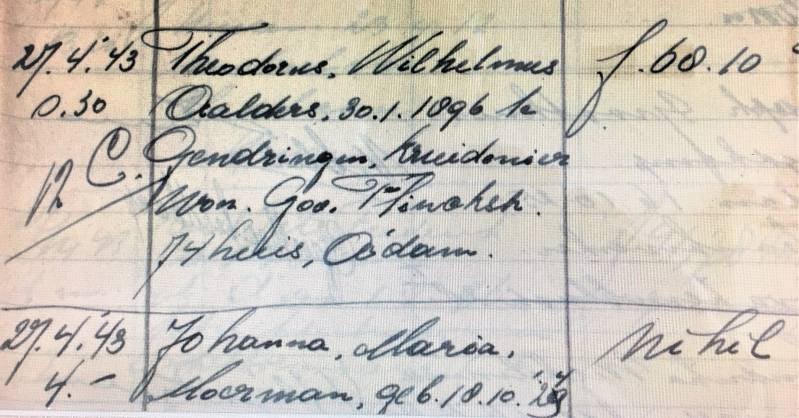 27.4.'43 Theodorus, Wilhelmus f. 68.10
0.30 Aalders, 30.1.1896 te
C. Gendringen, Kruidenier
12 Won. Gov. Flinckstr.
74 huis, A'dam.
27.4.'43 Johanna, Maria, Nihil
4.- Moerman, geb. 18.10.